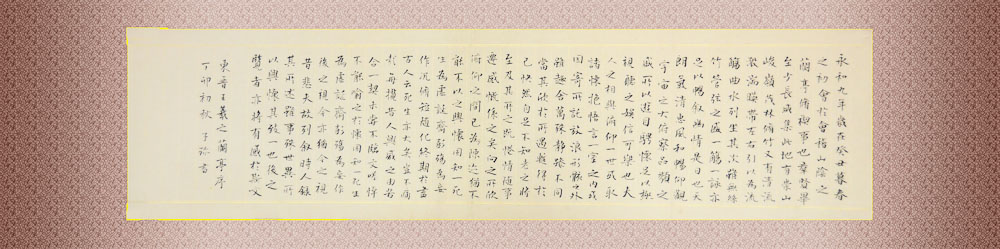 永和九年歲在癸丑暮春
之初會於會稽山陰之
蘭亭脩禊事也羣賢畢
至少長咸集此地有崇山
峻嶺茂林脩竹又有清流
激湍暎帶左右引以為流
觴曲水列坐其次雖無絲
竹管弦之盛一觴一詠亦
足以暢叙幽情是日也天
朗氣清惠風和暢仰觀
宇宙之大俯察品類之
盛所以遊目騁懷足以極
視聽之娛信可樂也夫
人之相與俯仰一世或取
諸懷抱悟言一室之內或
因寄所託放浪形骸之外
雖趣舍萬殊靜躁不同
當其欣於所遇暫得於
己快然自足不知老之將
至及其所之既惓情隨事
遷感慨係之矣向之所欣
俛仰之間已為陳迹猶不
能不以之興懷固知一死
生為虛誕齊彭殤為妄
作況脩短隨化終期於盡
古人云死生亦大矣豈不痛
哉每攬昔人興感之由若
合一契未嘗不臨文嗟悼
不能喻之於懷固知一死生
為虛誕齊彭殤為妄作
後之視今亦猶今之視
昔悲夫故列叙時人錄
其所述雖事殊世異所
以興懷其致一也後之
覽者亦將有感於斯文
東晉王羲之蘭亭序
丁卯初秋 子 書